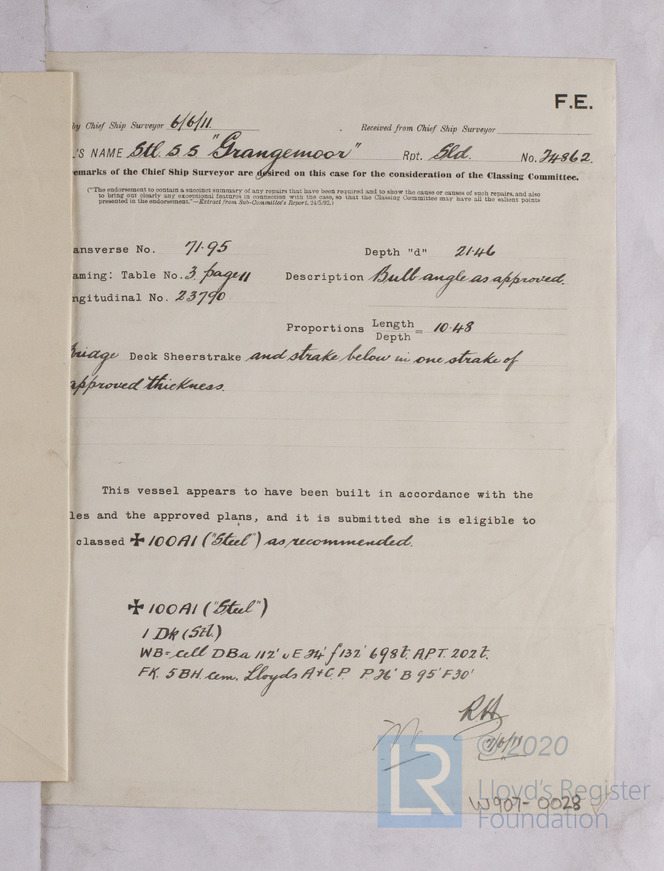 F.E.
by Chief Ship Surveyor 6/6/11 Received from Chief Ship Surveyor
L'S NAME Stl. S.S "Grangemoor" Rpt. Sld. No. 24862.
emarks of the Chief Ship Surveyor are desired on this case for the consideration of the Classing Committee.
("The endorsement to contain a succinct summary of any repairs that have been required and to show the cause or causes of such repairs, and also
to bring out clearly any exceptional features in connection with the case, so that the Classing Committee may have all the salient points
presented in the endorsement."—Extract from Sub-Committee's Report, 24/5/92.)
ansverse No. 71.95 Depth "d" 21.46
aming: Table No. 3 page 11 Description Bulb angle as approved.
ngitudinal No. 23790
Proportions Length = 10.48
Depth
ridge Deck Sheerstrake and strake below in one strake of
approved thickness.
This vessel appears to have been built in accordance with the
les and the approved plans, and it is submitted she is eligible to
classed ✠100A1 ("Steel") as recommended.
✠100A1 ("Steel")
1 Dk (Stl.)
WB=cell DBa 112' uE34' f132' 698t. APT. 202t.
FK. 5BH. cem. Lloyds A+C.P. P36' B 95' F30'
RH
7/6/11
© 2020
LR
Lloyd's Register
Foundation
W907-0028